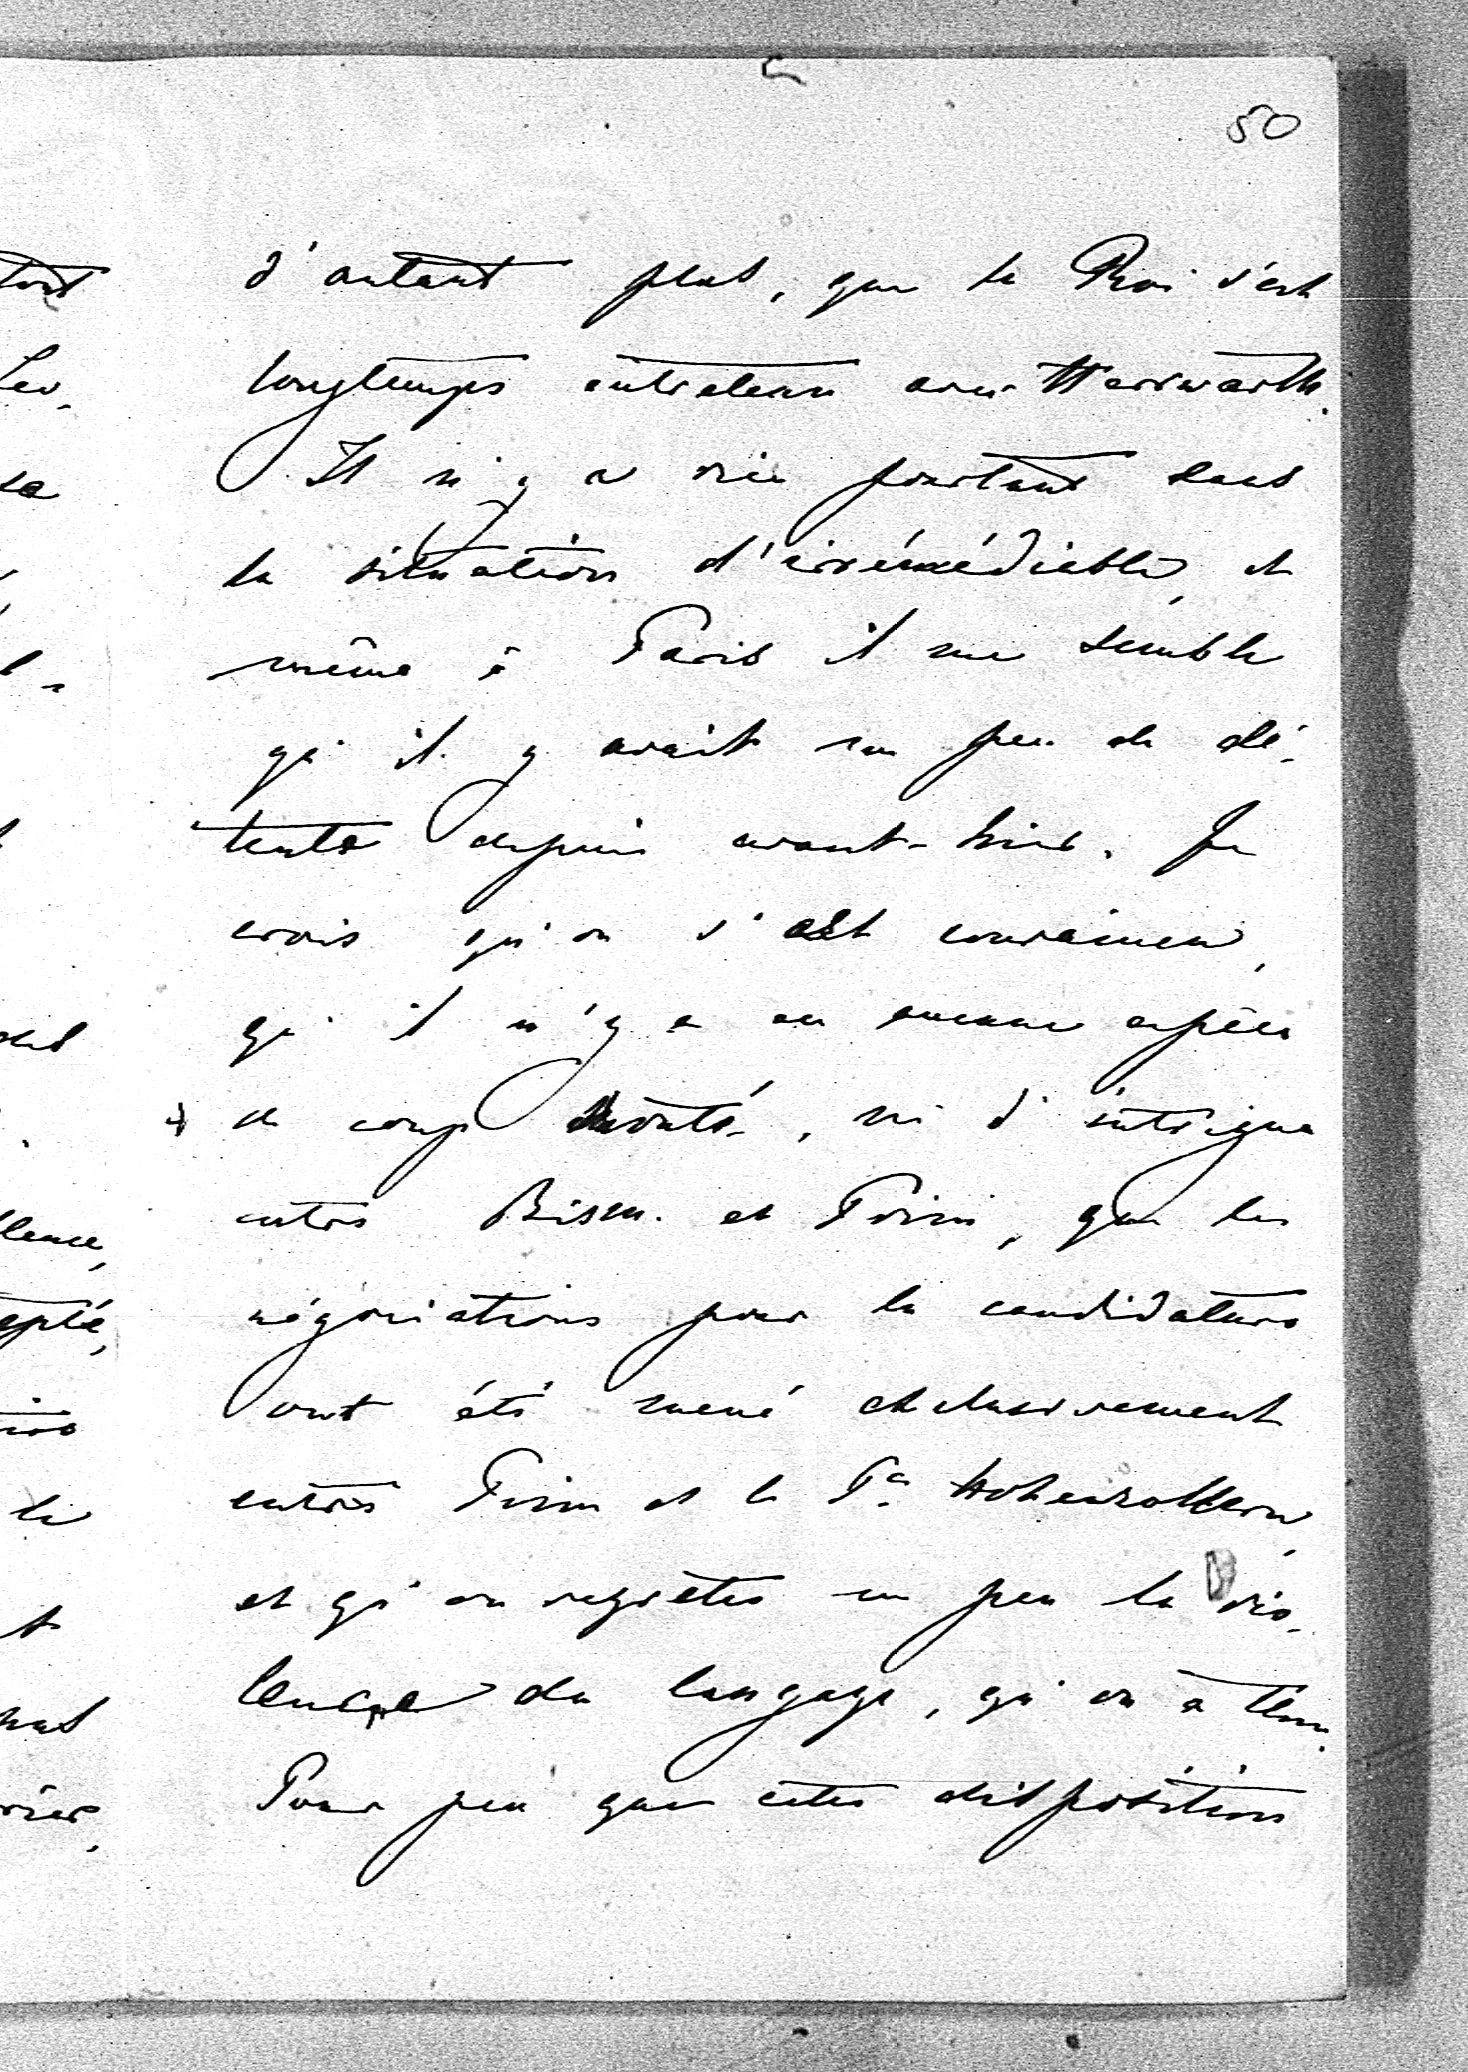 50
d'autant plus, que le Roi s'est
longtemps entretenu avec Herrwarth.
Il n'y a rien pourtant dans
la situation d'irrémédiable, et
même à Paris il me semble
qu'il y avait un peu de dé-
tente depuis avant-hier. Je
crois qu'on s'est convaincu,
qu'il n'y a eu aucune espèce
de coup monté, ni d'intrigue
entre Bism. et Prim, que les
négociations pour la candidature
ont été mené exclusivement
entre Prim et le Pce Hohenzollern,
et qu'on regrette un peu la vio-
lence du langage, qu'on a tenu.
Pour peu que cette disposition
tout
sa
lence,
epté,